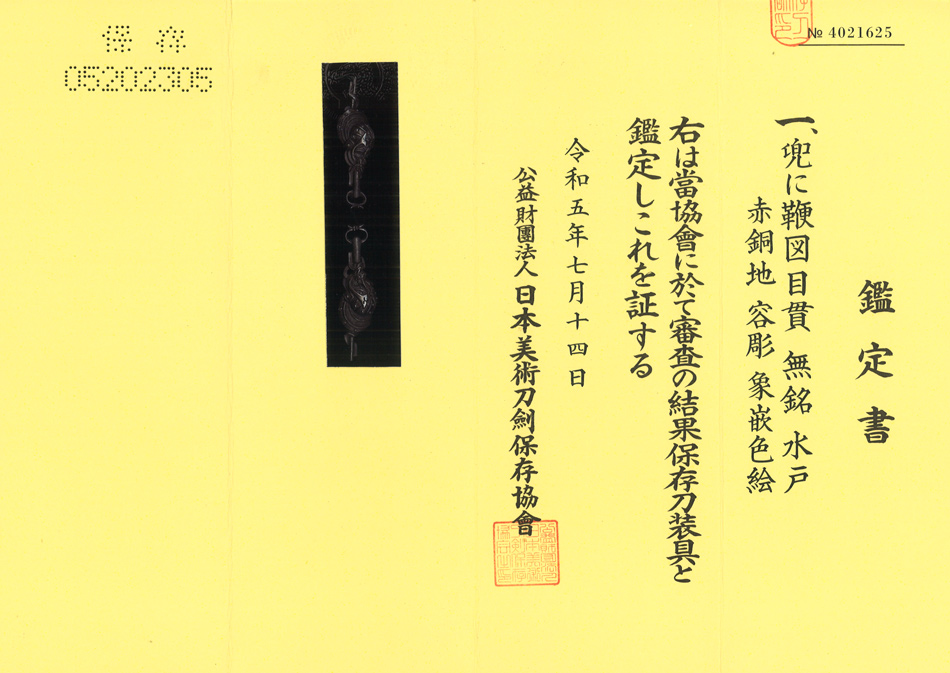 保存
05202305
№ 4021625
鑑定書
一、兜に鞭図目貫 無銘 水戸
赤銅地 容彫 象嵌色絵
右は當協會に於て審査の結果保存刀装具と
鑑定しこれを証する
令和五年七月十四日
公益財團法人日本美術刀劍保存協會